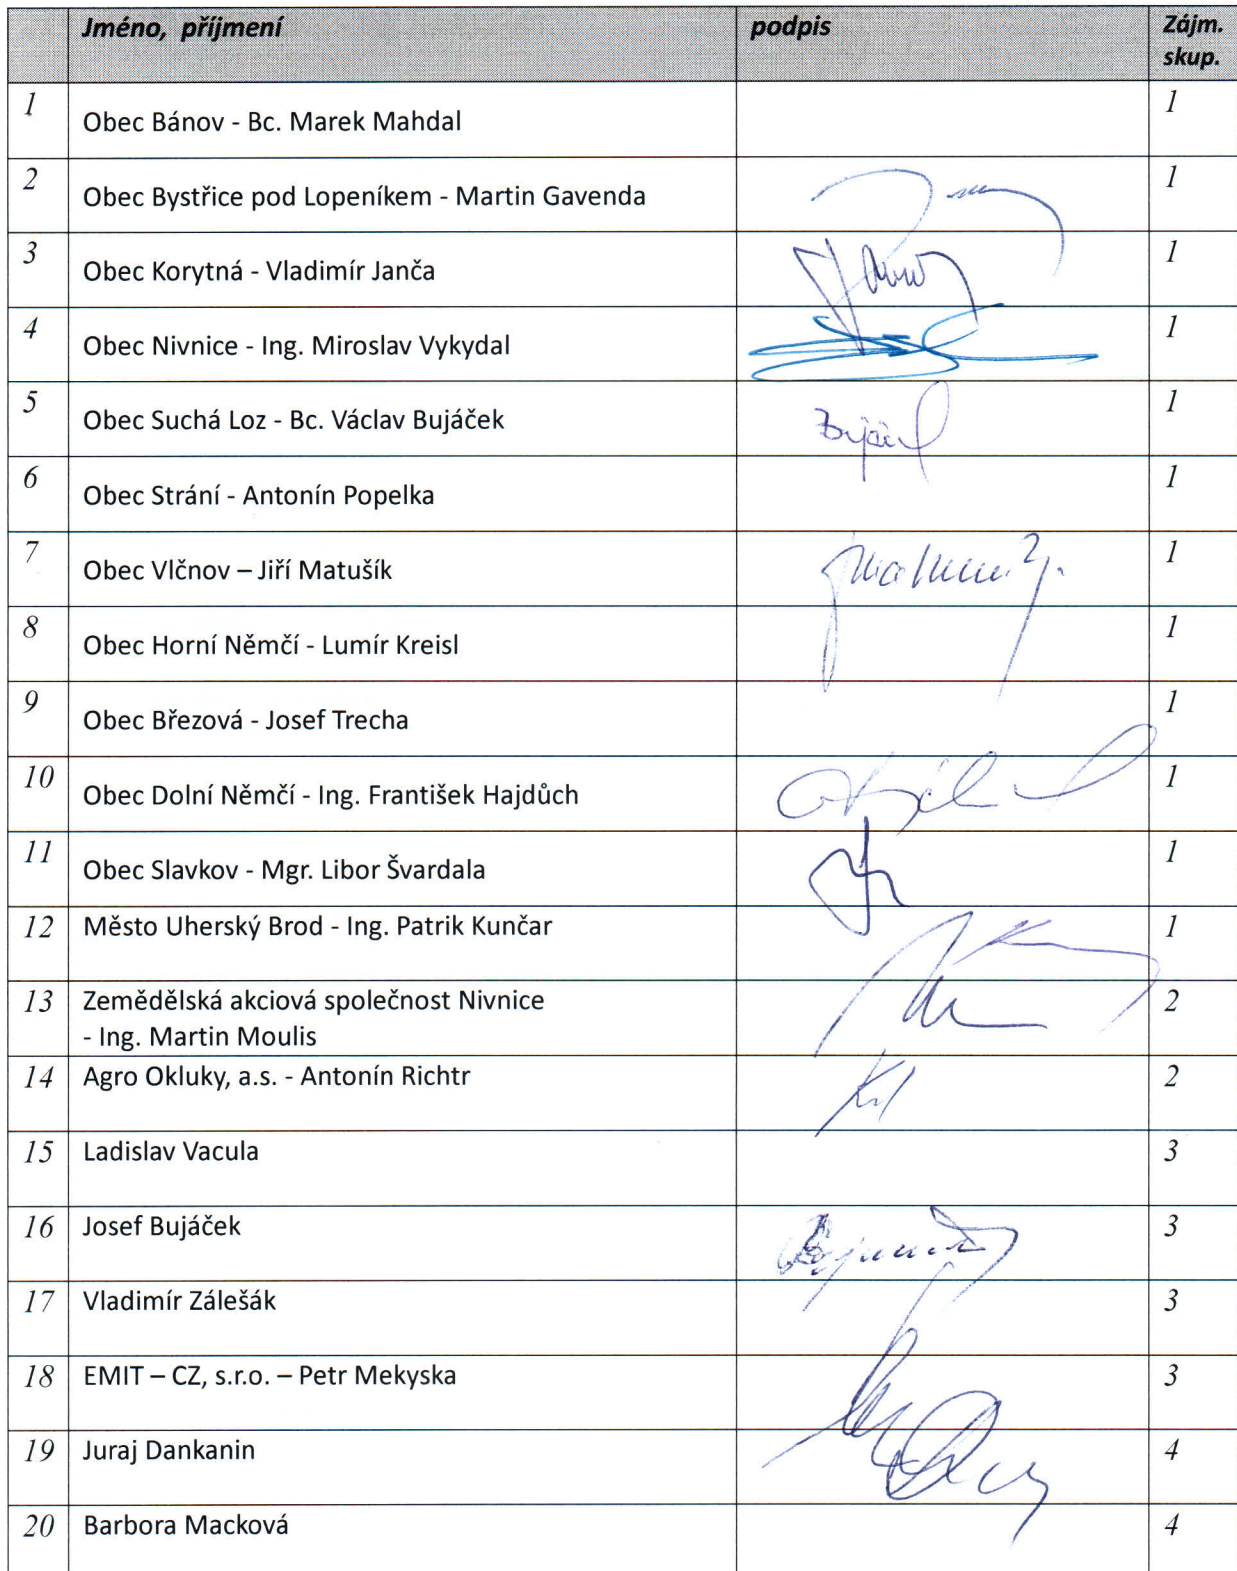 Jméno, příjmení podpis Zájm. skup.
1 Obec Bánov - Bc. Marek Mahdal 1
2 Obec Bystřice pod Lopeníkem - Martin Gavenda 1
3 Obec Korytná - Vladimír Janča 1
4 Obec Nivnice - Ing. Miroslav Vykydal 1
5 Obec Suchá Loz - Bc. Václav Bujáček 1
6 Obec Strání - Antonín Popelka 1
7 Obec Vlčnov – Jiří Matušík 1
8 Obec Horní Němčí - Lumír Kreisl 1
9 Obec Březová - Josef Trecha 1
10 Obec Dolní Němčí - Ing. František Hajdůch 1
11 Obec Slavkov - Mgr. Libor Švardala 1
12 Město Uherský Brod - Ing. Patrik Kunčar 1
13 Zemědělská akciová společnost Nivnice 2
- Ing. Martin Moulis
14 Agro Okluky, a.s. - Antonín Richtr 2
15 Ladislav Vacula 3
16 Josef Bujáček 3
17 Vladimír Zálešák 3
18 EMIT – CZ, s.r.o. – Petr Mekyska 3
19 Juraj Dankanin 4
20 Barbora Macková 4